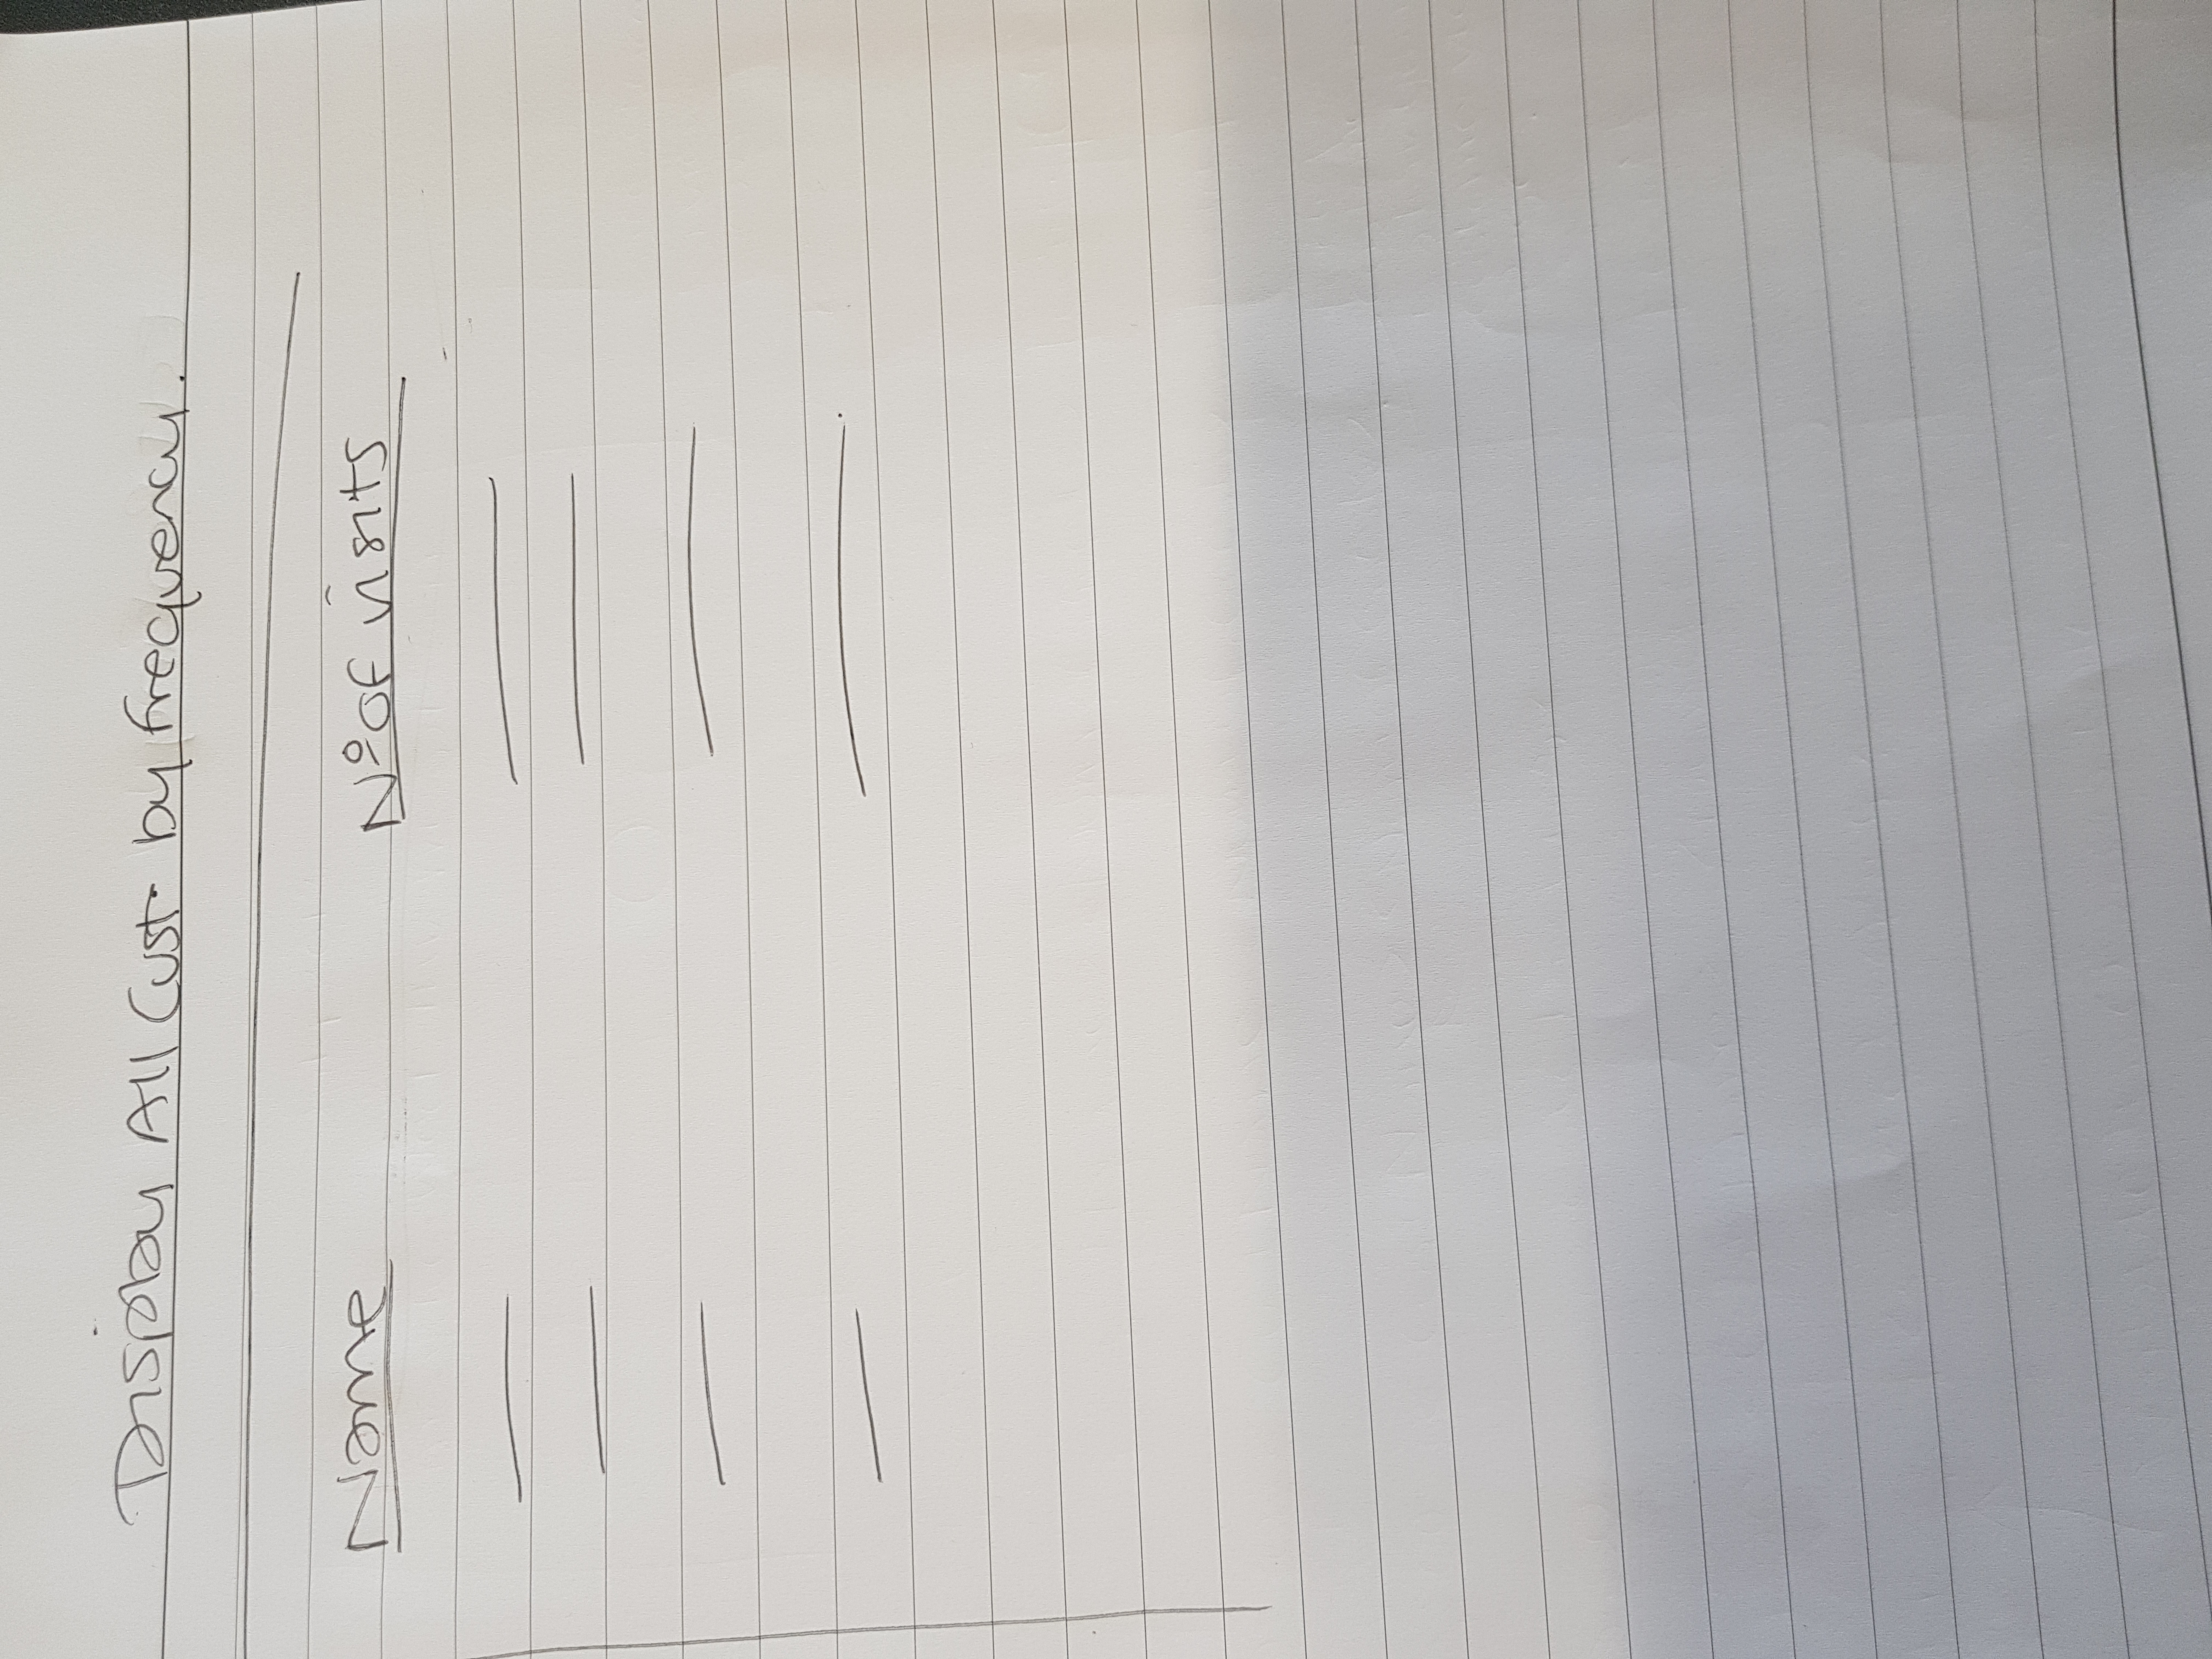 Display All Cust. by frequency.
Name Nº of visits